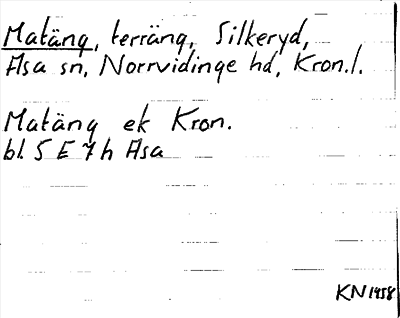 Matäng, terräng, Silkeryd,
Asa sn, Norrvidinge hd, Kron.l.
Matäng ek Kron.
bl. 5 E 7 h Asa
KN 1958